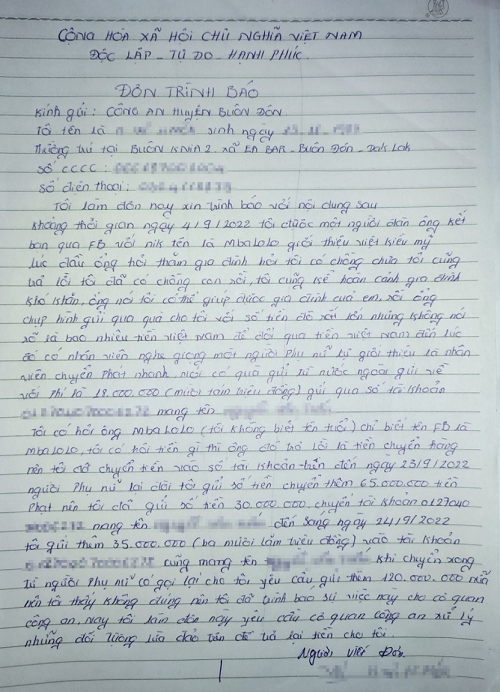 CỘNG HÒA XÃ HỘI CHỦ NGHĨA VIỆT NAM
ĐỘC LẬP - TỰ DO - HẠNH PHÚC.
ĐƠN TRÌNH BÁO
Kính gửi: CÔNG AN HUYỆN BUÔN ĐÔN.
Tôi tên là sinh ngày
Thường trú tại BUÔN KNIA 2. XÃ EA BAR - Buôn Đôn - Dak Lak
Số CCCC:
Số điện thoại:
Tôi làm đơn này xin trình báo với nội dung sau
Khoảng thời gian ngày 4/9/2022 tôi được một người đàn ông kết
bạn qua FB với nik tên là Mbalolo giới thiệu việt kiều mỹ
lúc đầu ông hỏi thăm gia đình hỏi tôi có chồng chưa tôi cũng
trả lời tôi đã có chồng con rồi, tôi cũng kể hoàn cảnh gia đình
khó khăn, ông nói tôi có thể giúp được gia đình của em rồi ông
chụp hình gửi qua quà cho tôi với số tiền đô rất lớn nhưng không nói
rõ là bao nhiêu tiền việt nam để đổi qua tiền việt nam đến lúc
đó có nhân viên nghe giọng một người Phụ nữ tự giới thiệu là nhân
viên chuyển Phát nhanh nói có quà gửi từ nước ngoài gửi về
với Phí là 18.000.000 (mười tám triệu đồng) gửi qua số tài khoản
mang tên
Tôi có hỏi ông Mbalolo (tôi không biết tên tuổi) chỉ biết tên FB là
Mbalolo, tôi có hỏi tiền gì thì ông đó trả lời là tiền chuyển hàng
nên tôi đã chuyển tiền vào số tài khoản trên đến ngày 23/9/2022
người Phụ nữ lại đòi tôi gửi số tiền chuyển thêm 65.000.000 tiền
Phạt nên tôi đã gửi số tiền 30.000.000 chuyển tài khoản 0127040
mang tên đến sáng ngày 24/9/2022
tôi gửi thêm 35.000.000 (ba mười lăm triệu đồng) vào tài khoản
cũng mang tên khi chuyển xong
từ người Phụ nữ có gọi lại cho tôi yêu cầu gửi thêm 120.000.000 nữa
nên tôi thấy không đúng nên tôi đã trình báo sự việc này cho cơ quan
công an, nay tôi làm đơn này yêu cầu cơ quan công an xử lý
những đối tượng lừa đảo trên để trả lại tiền cho tôi.
Người viết Đơn.